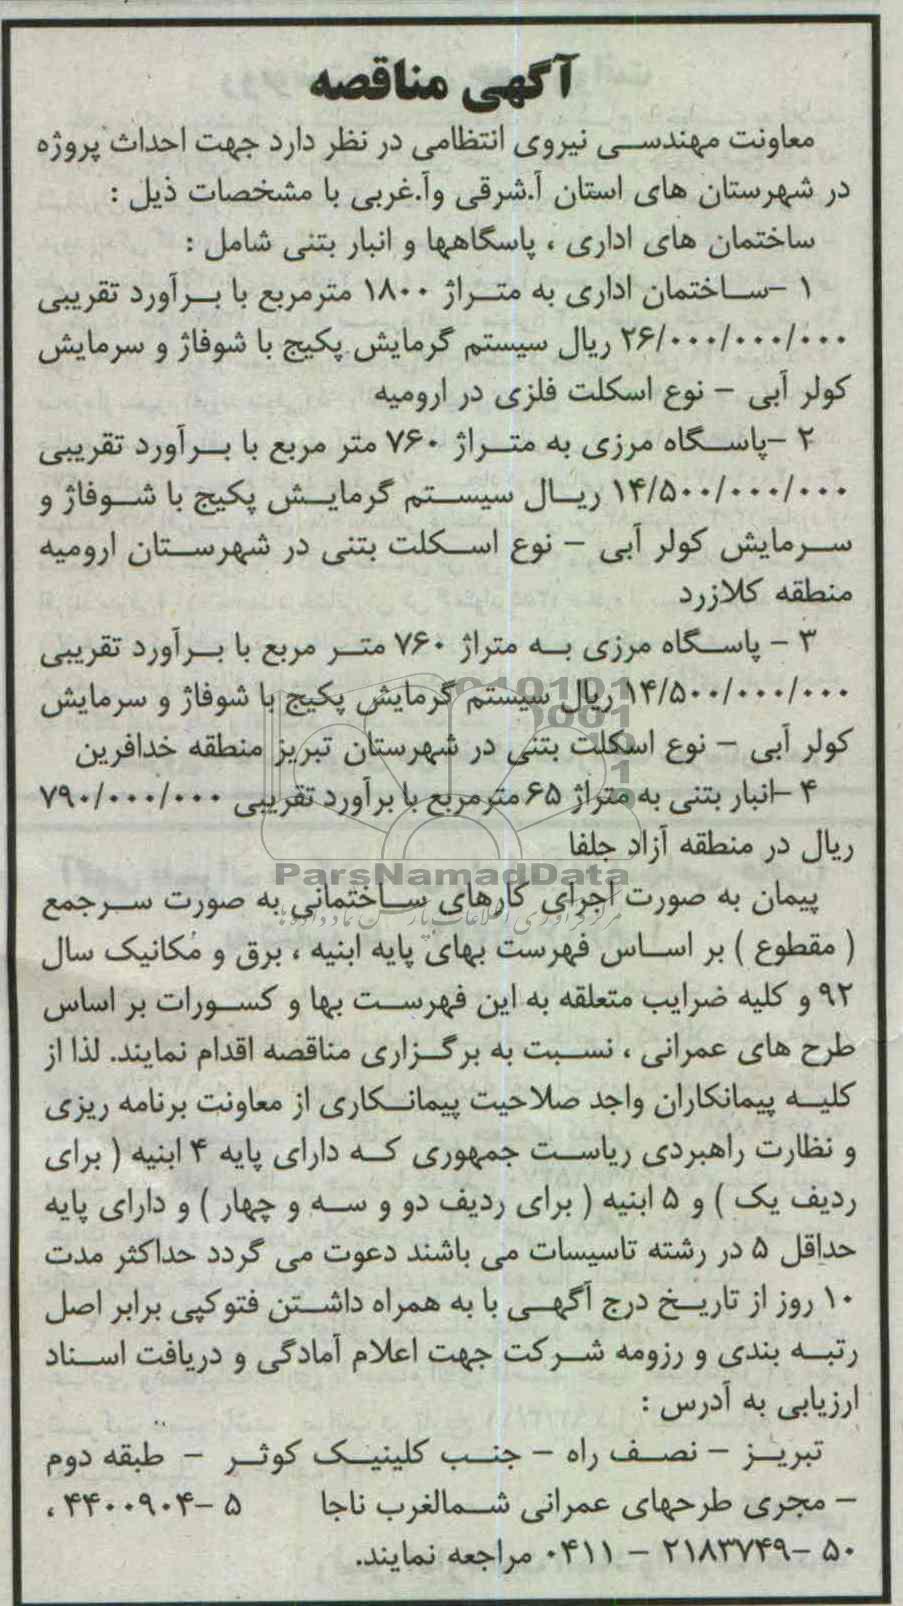 آگهی مناقصه
معاونت مهندسی نیروی انتظامی در نظر دارد جهت احداث پروژه
در شهرستان های استان آ.شرقی وآ.غربی با مشخصات ذیل :
ساختمان های اداری ، پاسگاهها و انبار بتنی شامل :
۱ –ساختمان اداری به متراژ ۱۸۰۰ مترمربع با برآورد تقریبی
۲۶/۰۰۰/۰۰۰/۰۰۰ ریال سیستم گرمایش پکیج با شوفاژ و سرمایش
کولر آبی – نوع اسکلت فلزی در ارومیه
۲ –پاسگاه مرزی به متراژ ۷۶۰ متر مربع با برآورد تقریبی
۱۴/۵۰۰/۰۰۰/۰۰۰ ریال سیستم گرمایش پکیج با شوفاژ و
سرمایش کولر آبی – نوع اسکلت بتنی در شهرستان ارومیه
منطقه کلازرد
۳ – پاسگاه مرزی به متراژ ۷۶۰ متر مربع با برآورد تقریبی
۱۴/۵۰۰/۰۰۰/۰۰۰ ریال سیستم گرمایش پکیج با شوفاژ و سرمایش
کولر آبی – نوع اسکلت بتنی در شهرستان تبریز منطقه خدافرین
۴ –انبار بتنی به متراژ ۶۵ مترمربع با برآورد تقریبی ۷۹۰/۰۰۰/۰۰۰
ریال در منطقه آزاد جلفا
ParsNamadData
پیمان به صورت اجرای کارهای ساختمانی به صورت سرجمع
( مقطوع ) بر اساس فهرست بهای پایه ابنیه ، برق و مکانیک سال
۹۲ و کلیه ضرایب متعلقه به این فهرست بها و کسورات بر اساس
طرح های عمرانی ، نسبت به برگزاری مناقصه اقدام نمایند. لذا از
کلیه پیمانکاران واجد صلاحیت پیمانکاری از معاونت برنامه ریزی
و نظارت راهبردی ریاست جمهوری که دارای پایه ۴ ابنیه ( برای
ردیف یک ) و ۵ ابنیه ( برای ردیف دو و سه و چهار ) و دارای پایه
حداقل ۵ در رشته تاسیسات می باشند دعوت می گردد حداکثر مدت
۱۰ روز از تاریخ درج آگهی با به همراه داشتن فتوکپی برابر اصل
رتبه بندی و رزومه شرکت جهت اعلام آمادگی و دریافت اسناد
ارزیابی به آدرس :
تبریز – نصف راه – جنب کلینیک کوثر – طبقه دوم
– مجری طرحهای عمرانی شمالغرب ناجا ۵ –۴۴۰۰۹۰۴ ،
۵۰ –۲۱۸۳۷۴۹ – ۰۴۱۱ مراجعه نمایند.